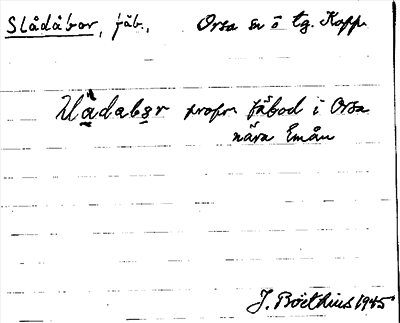 Slådåbor, fäb., Orsa sn ö tg. Kopp.
Uådabor propr fäbod i Orsa
nära Emån
J. Boëthius 1945